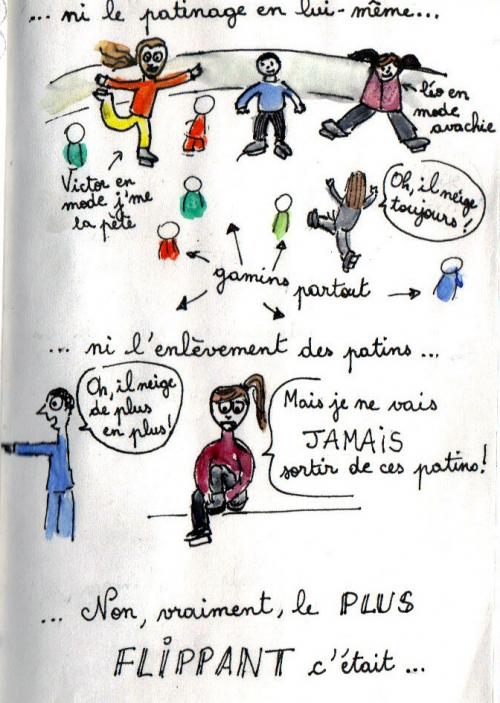 ... ni le patinage en lui-même...
léo en
mode
avachie
Victor en
mode j'me
la pète
Oh, il neige
toujours !
gamins
partout
... ni l'enlèvement des patins ...
Oh, il neige
de plus
en plus!
Mais je ne vais
JAMAIS
sortir de ces patins!
... Non, vraiment, le PLUS
FLIPPANT c'était ...